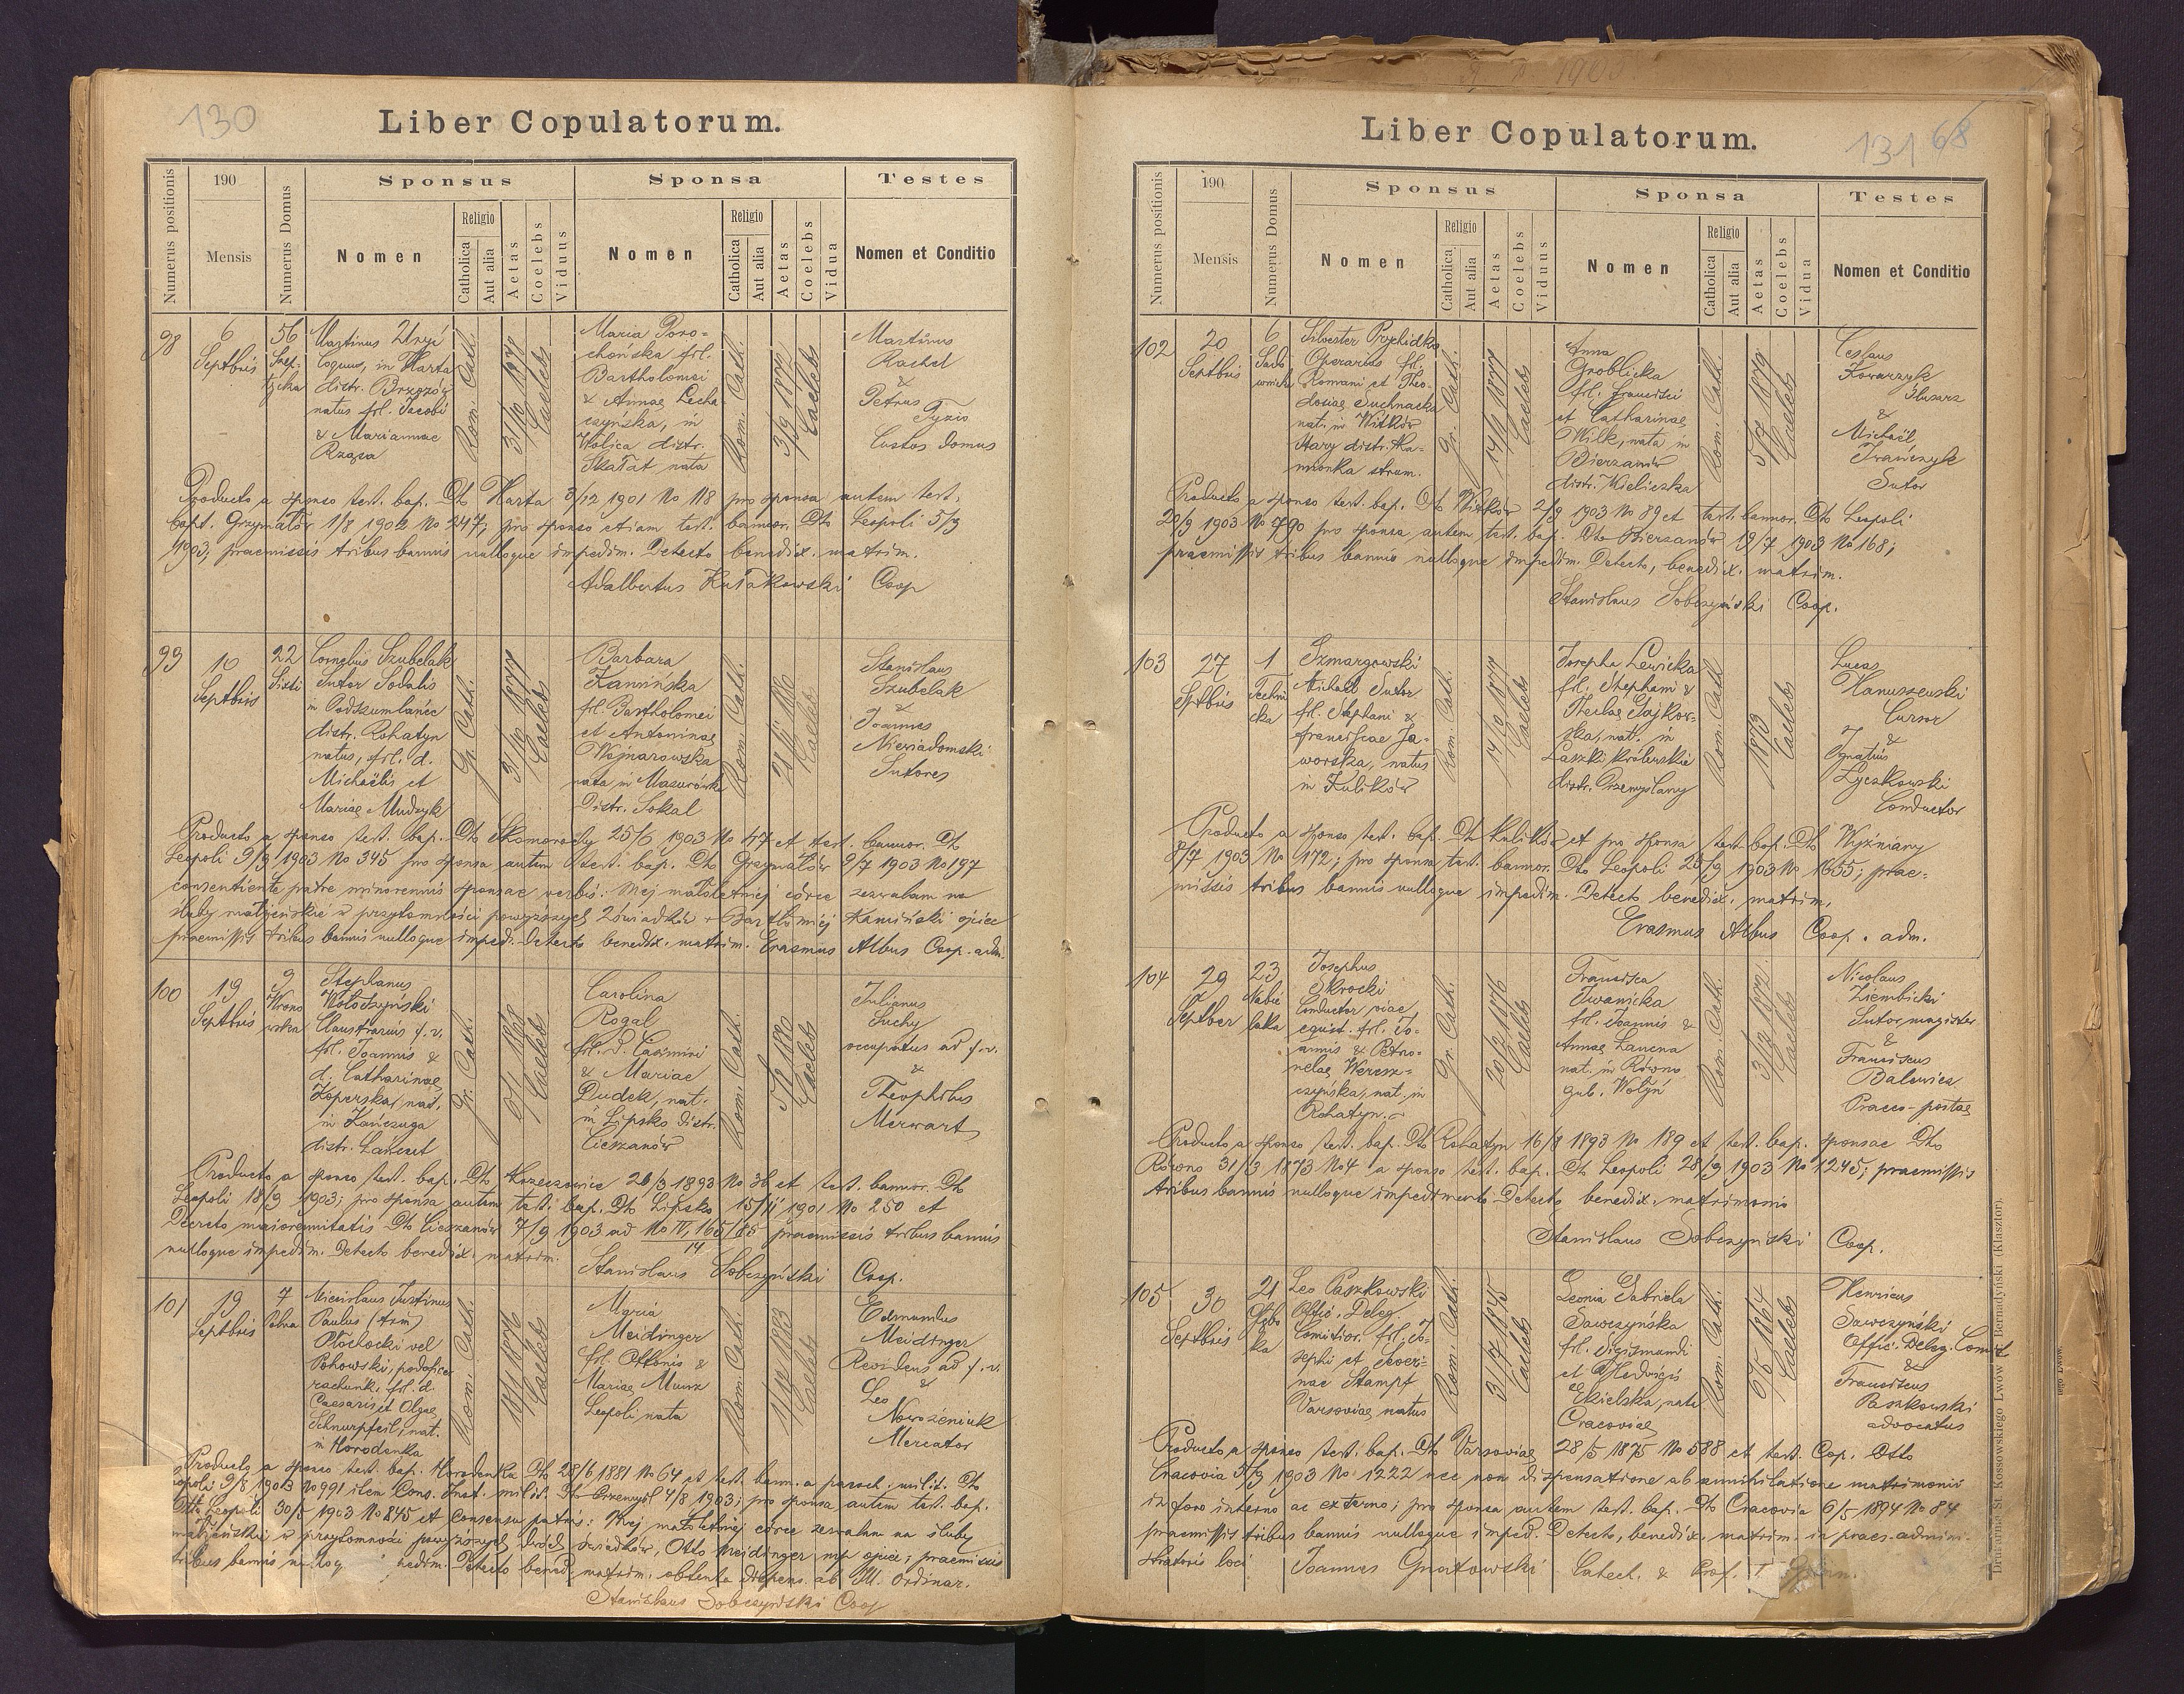 130
Liber Copulatorum.
Numerus positionis
190
Mensis
Numerus Domus
Sponsus
Nomen
Religio
Catholica
Aut alia
Aetas
Coelebs
Viduus
Sponsa
Nomen
Religio
Catholica
Aut alia
Aetas
Coelebs
Vidua
Testes
Nomen et Conditio
98
6
Septbris
56
Martinus
Coquus, in Harta
distr. Brzozów
natus fil. Jacobi
& Mariannae
Rząsa
Rom. Cath.
Caelebs
Maria Doro-
chońska fil.
Bartholomei
& Annae Lecha-
czyńska, in
Wolica distr.
Skałat nata
Rom. Cath.
3/9 1877
Caelebs
Martinus
Rachel
&
Petrus
Tyzio
Custos domus
Producto a sponso test. bap. Dto Harta 3/12 1901 No 118 pro sponsa autem test.
bapt. Grzymałów 1/8 1902 No 247; pro sponso etiam test. bannor. Dto Leopoli 5/9
1903; praemissis tribus bannis nulloque impedim. Detecto benedix. matrim.
Adalbertus Kułakowski Coop
99
10
Septbris
22
Sixti
Cornelius Szubelak
Sutor Sodalis
in Podszumlańce
distr. Rohatyn
natus, fil. d.
Michaëlis et
Mariae Mudryk
Gr. Cath.
Caelebs
Barbara
Kamińska
fil. Bartholomei
et Antoninae
Wojnarowska
nata in Mazurówka
Distr. Sokal
Rom. Cath.
Caelebs
Stanislaus
Szubelak
&
Joannes
Niewiadomski
Sutores
Producto a sponso test. bap. Dto Skomorochy 25/6 1903 No 47 et test. bannor. Dt
Leopoli 9/9 1903 No 345 pro sponsa autem test. bap. Dto Grzymałów 9/7 1903 No 197
consentiente patre minorennis sponsae verbis: Mej małoletniej córce zezwalam na
śluby małżeńskie w przytomności powyższych 2 świadków + Bartłomiej Kamiński ojciec
praemissis tribus bannis nulloque imped. Detecto benedix. matrim. Erasmus Albus Coop. adm.
100
19
Septbris
9
Wrono
wska
Stephanus
Wołoszyński
Claustrarius f. v.
fil. Joannis &
d. Catharinae
Koperska, nat.
in Kańczuga
distr. Łańcut
Gr. Cath.
6/1 1868
Caelebs
Carolina
Rogal
fil. D. Casimiri
& Mariae
Dudek, nat.
in Lipsko distr.
Cieszanów
Rom. Cath.
Caelebs
Julianus
Suchy
occupatus ad f. v.
&
Theophilus
Merwart
Producto a sponso test. bap. Dto Krzeczowice 26/3 1893 No 36 et test. bannor. Dto
Leopoli 18/9 1903; pro sponsa autem test. bap. Dto Lipsko 15/11 1901 No 250 et
Decreto majorennitatis Dto Cieszanów 7/9 1903 ad No IV, 165/85 praemissis tribus bannis
14
nulloque impedim. Detecto benedix. matrim.
Stanislaus Sobczyński Coop.
101
19
Septbris
7
Pełna
Miecislaus Justinus
Paulus (trin)
Płochocki vel
Pohowski, podoficer
rachunk. fil. d.
Caesaris et Olgae
Schnurpfeil, nat.
in Horodenka
Rom. Cath.
Caelebs
Maria
Meidinger
fil. Ottonis &
Mariae Munz
Leopoli nata
Rom. Cath.
Caelebs
Edmundus
Meidinger
Revidens ad f. v.
&
Leo
Nowożeniuk
Mercator
Producto a sponso test. bap. Horodenka Dto 28/6 1881 No 64 et test. bann. a paroch. milit. Dto
opoli 9/8 1903 No 991 item Cons. Inst. milit. Dto Przemyśl 4/8 1903; pro sponsa autem test. bap.
Dtto Leopoli 30/8 1903 No 845 et consensu patris: Mej małoletniej córce zezwalam na śluby
małżeńskie w przytomności powyższych dwóch świadków, Otto Meidinger mp ojciec; praemissis
tribus bannis nulloq pedim. Detecto bened. matrim. obtenta dispens. ab Ill. Ordinar.
Stanislaus Sobczyński Coop
131
68
Liber Copulatorum.
Numerus positionis
190
Mensis
Numerus Domus
Sponsus
Nomen
Religio
Catholica
Aut alia
Aetas
Coelebs
Viduus
Sponsa
Nomen
Religio
Catholica
Aut alia
Aetas
Coelebs
Vidua
Testes
Nomen et Conditio
102
20
Septbris
6
Sado
wnicka
Silvester Przykidka
Operarius fil.
Romani et Theo-
dosiae Suchnacka
nat. in Witków
Stary distr. Ka-
mionka strum.
Gr. Cath.
14/1 1877
Caelebs
Anna
Groblicka
fil. Francisci
et Catharinae
Wilk, nata in
Bierzanów
distr. Wieliczka
Rom. Cath.
5/7 1879
Caelebs
Ceslaus
Kowarzyk
Ślusarz
&
Michaël
Frańczyk
Sutor
Producto a sponso test. bap. Dto Witków 2/9 1903 No 89 et test. bannor. Dto Leopoli
20/9 1903 No 790 pro sponsa autem test. bap. Dto Bierzanów 19/7 1903 No 168;
praemissis tribus bannis nulloque impedim. Detecto, benedix. matrim.
Stanislaus Sobczyński Coop.
103
27
Septbris
1
Techni
cka
Szmargowski
Michael Sutor
fil. Stephani &
Franciscae Ja-
worska, natus
in Kulików
Rom. Cath.
14/10 1877
Caelebs
Josepha Lewicka
fil. Stephani &
Theclae Gajkow-
ska, nat. in
Laszki królewskie
distr. Przemyślany
Rom. Cath
1873
Caelebs
Lucas
Hanuszewski
Cursor
&
Ignatius
Łyczkowski
Conductor
Producto a sponso test. bap. Dto Kulików et pro sponsa test. bap. Dto Wyżniany
8/7 1903 No 172; pro sponsa test. bannor. Dto Leopoli 25/9 1903 No 1655; prae-
missis tribus bannis nulloque impedim. Detecto benedix. matrim.
Erasmus Albus Coop. adm.
104
29
Septber
23
Nabie
laka
Josephus
Skrocki
Conductor viae
equist. fil. Jo-
annis & Petro-
nelae Weresz-
czyńska, nat. in
Rohatyn.
Gr. Cath.
20/2 1876
Caelebs
Francisca
Iwanicka
fil. Joannis &
Annae Zanena
nat. in Równo
gub. Wołyń
Rom. Cath.
3/12 1872
Caelebs
Nicolaus
Ziembicki
Sutor magister
&
Franciscus
Balewicz
Praeco-postae
Producto a sponso test. bap. Dto Rohatyn 16/8 1893 No 189 et test. bap. sponsae Dto
Równo 31/3 1873 No 4 a sponso test. bap. Dto Leopoli 28/9 1903 No 1245; praemissis
tribus bannis nulloque impedimento Detecto benedix. matrimonio
Stanislaus Sobczyński Coop.
105
30
Septbris
21
Ossoli
ka
Leo Paszkowski
Offic. Deleg.
Comitior. fil. Jo-
sephi et Severi-
nae Stampf
Varsoviae natus
Rom. Cath.
31/7 1845
Caelebs
Leonia Gabriela
Sawczyńska
fil. Sigismundi
et Hedvigis
Skielska, nata
Cracoviae
Rom. Cath.
6/5 1864
Caelebs
Henricus
Sawczyński
Offic. Deleg. Comit
&
Franciscus
Paszkowski
advocatus
Producto a sponso test. bap. Dto Varsoviae 28/5 1875 No 588 et test. Cop. Dtto
Cracovia 5/9 1903 No 1222 nec non dispensatione ab annihilatione matrimonii
in foro interno ac externo; pro sponsa autem test. bap. Dto Cracovia 6/5 1894 No 84
praemissis tribus bannis nulloque imped. Detecto, benedix. matrim. in praes. admini-
stratoris loci Joannes Gnatowski Catech. & Prof. I Gymn.
Drukarnia St. Kossowskiego Lwów Bernadyński (Klasztor).